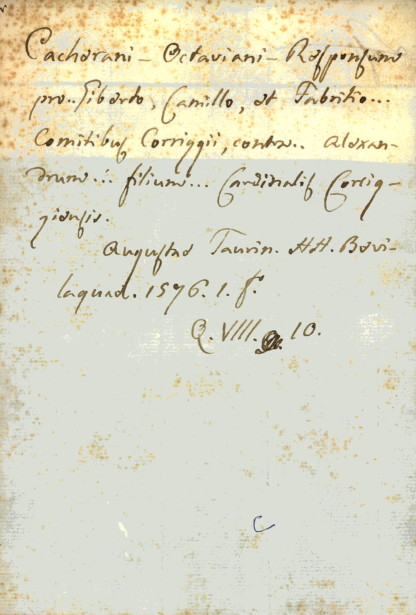 Cacherani – Octaviani – Responsum
pro.. Giberto, Camillo, et Fabritio...
Comitibus Corrigii, contra.. Alexan-
drum... filium... Cardinalis Corrig-
giensis.
Augustae Taurin. HH. Bevi-
laquae. 1576. 1. f.°
Q. VIII. 10.
C